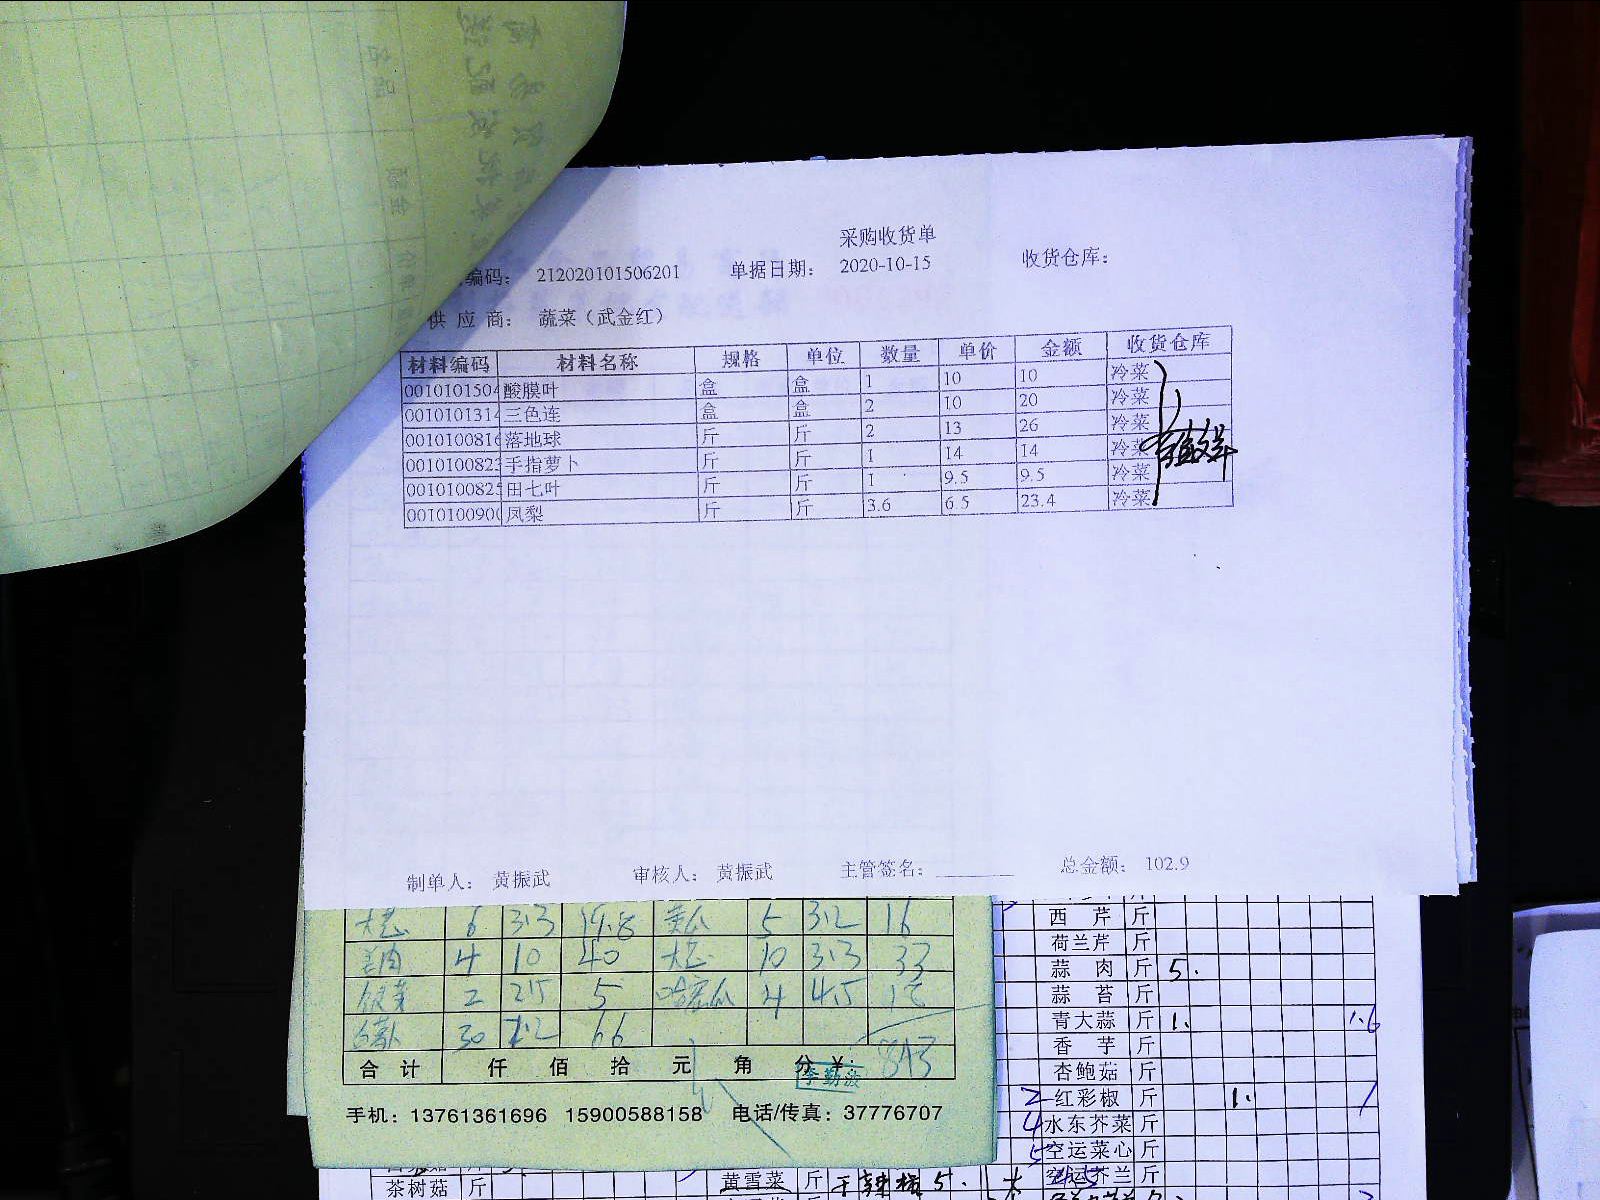 采购收货单
编码： 212020101506201 单据日期： 2020-10-15 收货仓库：
供 应 商： 蔬菜（武金红）
材料编码 材料名称 规格 单位 数量 单价 金额 收货仓库
0010101504 酸膜叶 盒 盒 1 10 10 冷菜
0010101314 三色连 盒 盒 2 10 20 冷菜
0010100816 落地球 斤 斤 2 13 26 冷菜
001010082 手指萝卜 斤 斤 1 14 14 冷菜
001010082 田七叶 斤 斤 1 9.5 9.5 冷菜
0010100900 凤梨 斤 斤 3.6 6.5 23.4 冷菜
制单人： 黄振武 审核人： 黄振武 主管签名： 总金额： 102.9
6 3.3 19.8 黄瓜 5 3.2 16
4 10 40 10 3.3 33
2 2.5 5 哈密瓜 4 4.5
30 2.2 66
合 计 仟 佰 拾 元 角 分 ¥: 843
李勤波
手机：13761361696 15900588158 电话/传真：37776707
西 芹 斤
荷兰芹 斤
蒜 肉 斤 5.
蒜 苔 斤
青大蒜 斤 1. 1.6
香 芋 斤
杏鲍菇 斤
2 红彩椒 斤 1. 1
4 水东芥菜 斤
5 空运菜心 斤
空运芥兰 斤
黄雪菜 斤 干辣椒 5.
茶树菇 斤